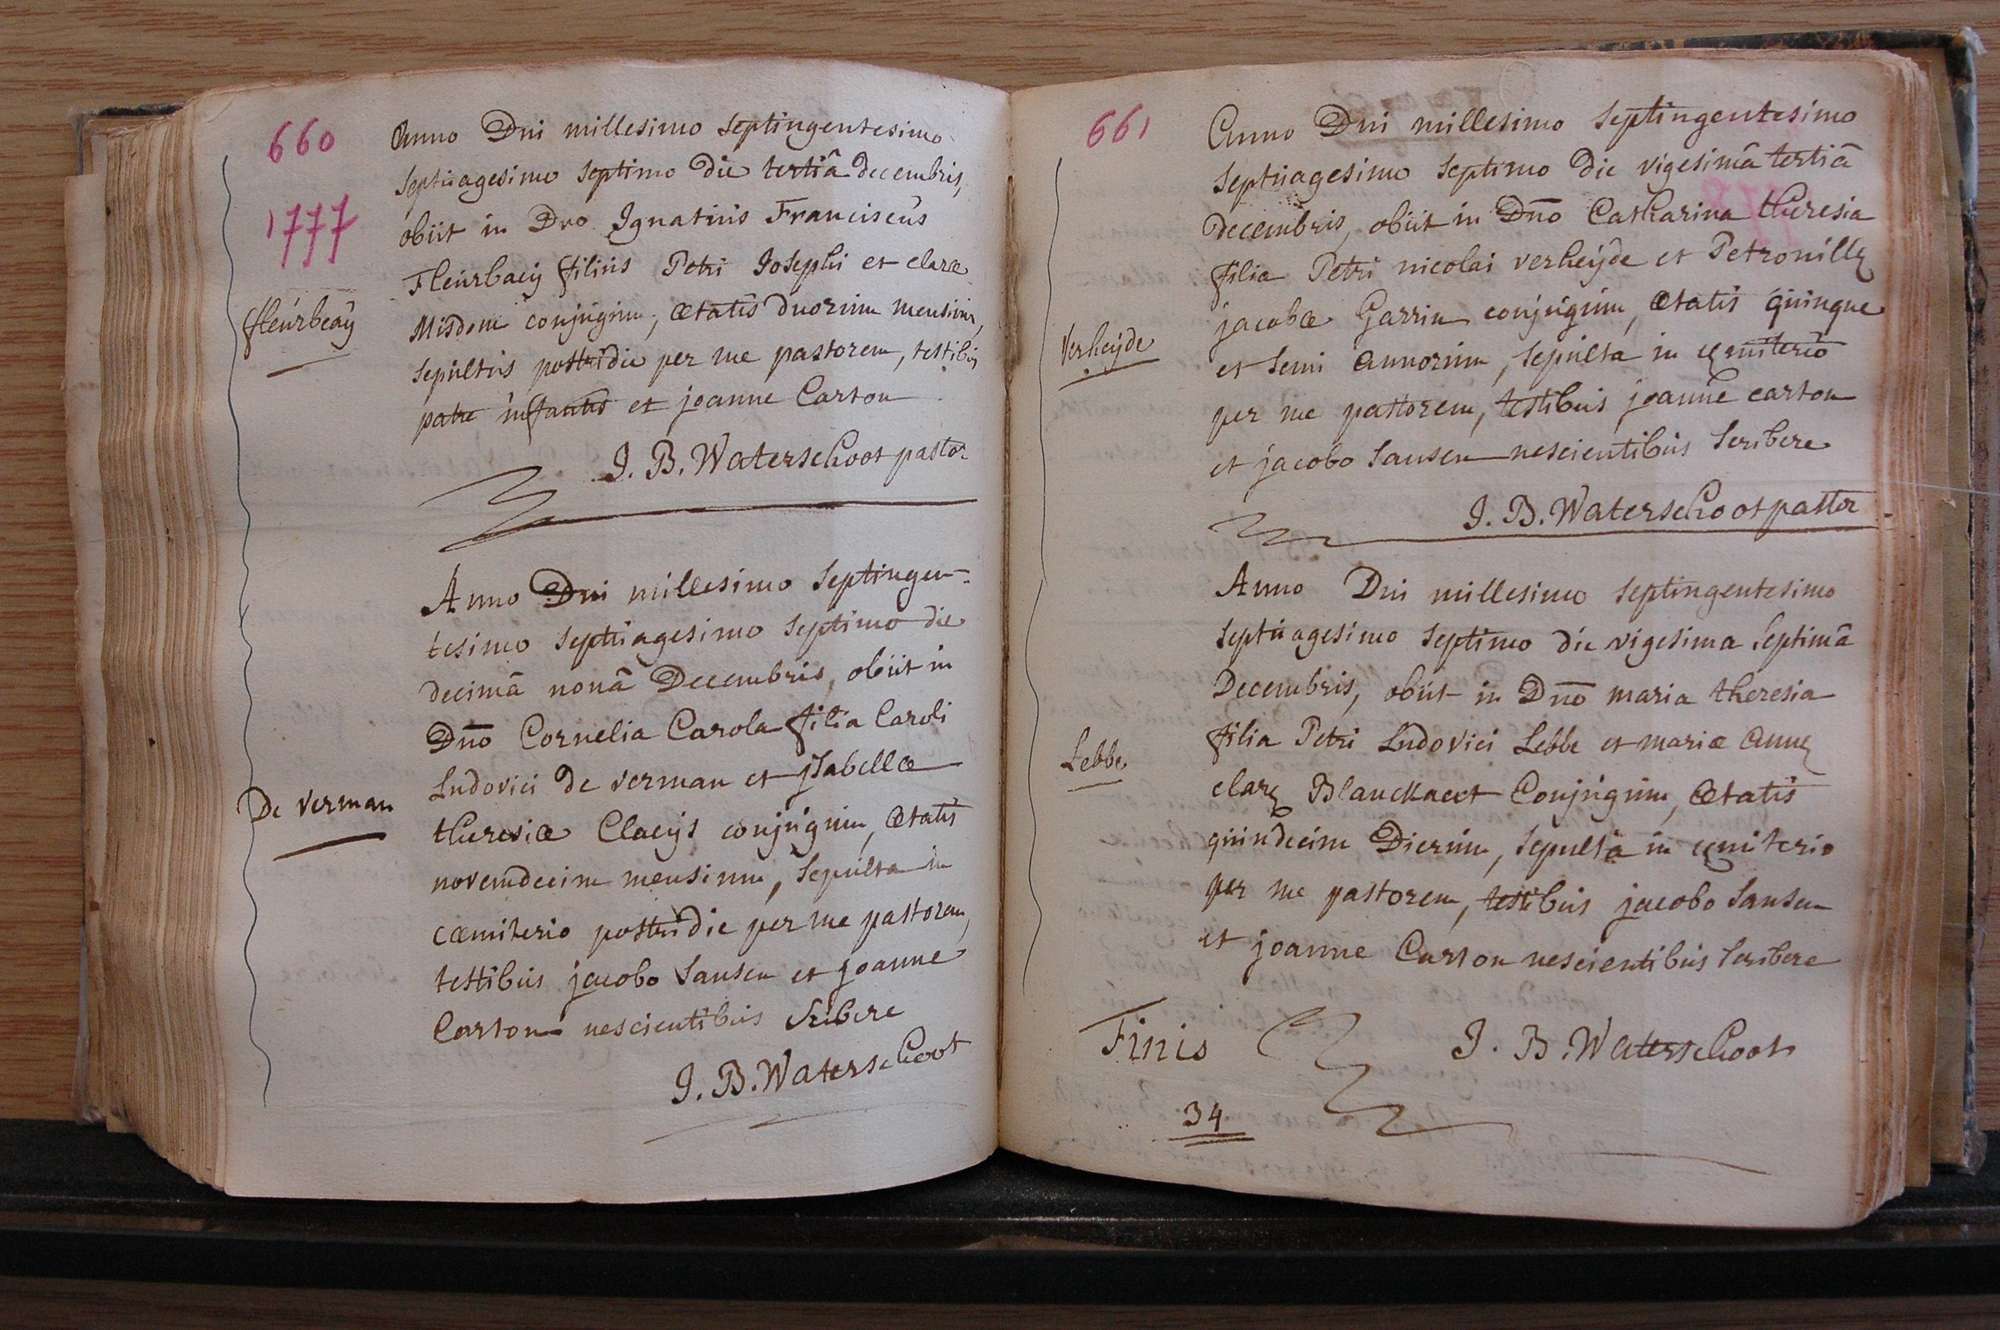 660
1777
Anno Dni millesimo Septingentesimo
septuagesimo septimo die tertiâ decembris,
obiit in Dno Ignatius Franciscus
Fleurbaeij filius Petri Josephi et clarae
Misdom conjugum, aetatis duorum mensium,
sepultus postridie per me pastorem, testibus
patre infantis et joanne Carton
J. B. Waterschoot pastor
fleurbeaÿ
Anno Dni millesimo Septingen-
tesimo septuagesimo septimo die
decimâ nonâ Decembris, obiit in
Dn̄o Cornelia Carola filia Caroli
Ludovici de verman et jsabellae
theresiae Claeijs conjugum, aetatis
novemdecim mensium, sepulta in
caemiterio postridie per me pastorem,
testibus jacobo Sansen et joanne
Carton nescientibus scribere
J. B. Waterschoot
De verman
661
Anno Dni millesimo Septingentesimo
septuagesimo septimo die vigesimâ tertiâ
decembris, obiit in Dn̄o Catharina theresia
filia Petri nicolai verheÿde et Petronillę
jacobae Garrin conjugum, aetatis quinque
et semi annorum, sepulta in cęmiterio
per me pastorem, testibus joanne carton
et jacobo Sansen nescientibus scribere
J. B. Waterschoot pastor
Verheÿde
Anno Dni millesimo septingentesimo
septuagesimo septimo die vigesima septimâ
Decembris, obiit in Dn̄o maria theresia
filia Petri Ludovici Lebbe et mariae Annę
clarę Blanckaert Conjugum, aetatis
quindecim Dierum, sepulta in cęmiterio
per me pastorem, testibus jacobo Sansen
et joanne Carton nescientibus scribere
Lebbe
Finis J. B. Waterschoot
34